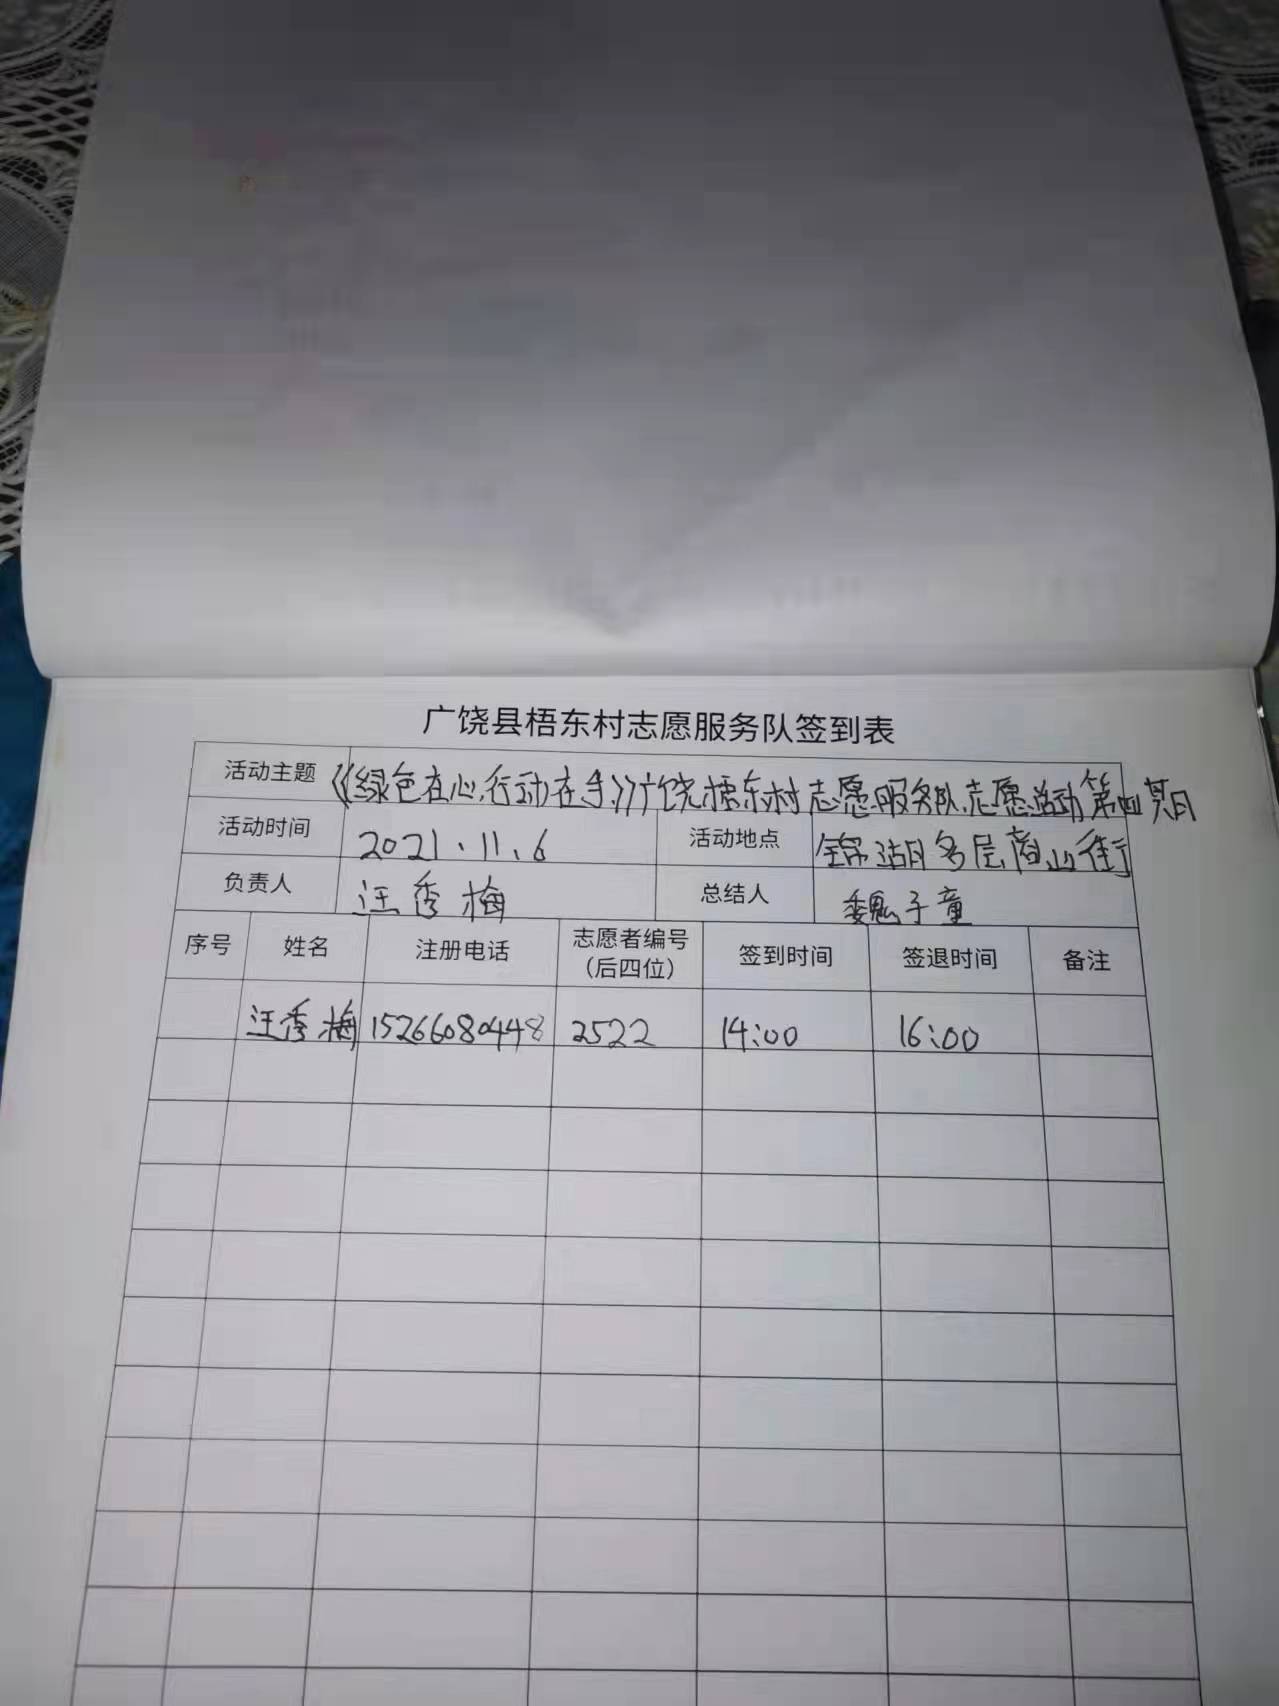 广饶县梧东村志愿服务队签到表
活动主题 《绿色在心,行动在手》广饶梧东村志愿服务队志愿活动第四期
活动时间 2021.11.6 活动地点 锦湖多层商业街
负责人 汪秀梅 总结人 魏子童
序号 姓名 注册电话 志愿者编号 签到时间 签退时间 备注
（后四位）
汪秀梅 15266080448 2522 14:00 16:00